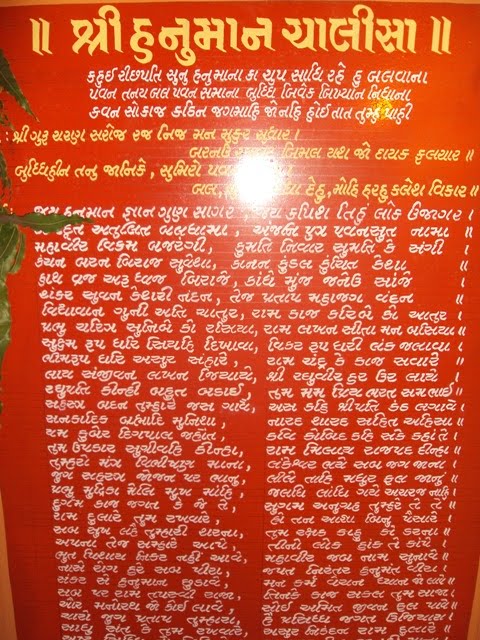 ॥ શ્રી હનુમાન ચાલીસા ॥
કહઇ રીછપતિ સુનુ હનુમાના કા ચુપ સાધિ રહે હુ બલવાના
પવન તનય બલ પવન સમાના બુદ્ધિ બિવેક બિગ્યાન નિધાના
કવન સોકાજ કઠિન જગમાહિ જોનહિ હોઈ તાત તુમ્હ પાહી
શ્રી ગુરુ ચરણ સરોજ રજ નિજ મન મુકુર સુધાર ।
બરનઉ બિમલ યશ જો દાયક ફલચાર ॥
બુદ્ધિહીન તનુ જાનિકે, સુમિરો પવ
બલ, દેહુ, મોહિ હરહુ કલેશ વિકાર ॥
જય હનુમાન જ્ઞાન ગુણ સાગર, જય કપિશ તિહું લોક ઉજાગર ।
અતુલિત બલધામા, અંજની પુત્ર પવનસુત નામા ॥
મહાવીર વિક્રમ બજરંગી, કુમતિ નિવાર સુમતિ કે સંગી ।
કંચન બરન બિરાજ સુવેશા, કાનન કુંડલ કુંચિત કેશા ॥
હાથ વ્રજ અરુ ધ્વજ બિરાજે, કાંધે મુંજ જનેઉ સાજે ।
શંકર સુવન કેશરી નંદન, તેજ પ્રતાપ મહાજગ વંદન ॥
વિદ્યાવાન ગુની અતિ ચાતુર, રામ કાજ કરિબે કો આતુર ।
પ્રભુ ચરિત્ર સુનિબે કો રસિયા, રામ લખન સીતા મન બસિયા ॥
સુક્ષ્મ રૂપ ધરિ સિયહિ દિખાવા, વિકટ રૂપ ધરી લંક જલાવા ।
ભીમરૂપ ધરિ અસુર સંહારે, રામ ચંદ્ર કે કાજ સવારે ॥
લાય સંજીવન લખન જિયાયે, શ્રી રઘુવીર હરષ ઉર લાયે ।
રઘુપતિ કીન્હી બહુત બડાઈ, તુમ મમ પ્રિય ભરત સમ ભાઈ ॥
સહસ્ત્ર બદન તુમ્હારે જસ ગાવે, અસ કહિ શ્રીપતિ કંઠ લગાવે ।
સનકાદિક બ્રહ્માદિ મુનિશા, નારદ શારદ સહિત અહિસા ॥
યમ કુબેર દિગપાલ જહાંતે, કવિ કોબિદ કહિ સકે કહાં તે ।
તુમ ઉપકાર સુગ્રીવહિ કીન્હા, રામ મિલાય રાજપદ દીન્હા ॥
તુમ્હરો મંત્ર વિભીષણ માના, લંકેશ્વર ભયે સબ જગ જાના ।
જુગ સહસ્ત્ર જોજન પર ભાનુ, લીલ્યો તાહિ મધુર ફલ જાનુ ॥
પ્રભુ મુદ્રિકા મેલિ મુખ માંહિ, જલધિ લાંઘિ ગયે અચરજ નાહિ ।
દુર્ગમ કાજ જગત કે જે તે, સુગમ અનુગ્રહ તુમ્હરે તે તે ॥
રામ દુલારે તુમ રખવારે, હો તન આજ્ઞા બિનુ પૈસારે ।
સબ સુખ લહે તુમ્હારી શરના, તુમ રક્ષક કાહુ કો ડરના ॥
આપન તેજ સમ્હારો આપે, તીનો લોક હાંક તે કાંપે ।
ભૂત પિશાચ નિકટ નહીં આવે, મહાવીર જબ નામ સુનાવે ॥
નાસે રોગ હરે સબ પીરા, જપત નિરંતર હનુમંત વીરા ।
સંકટ સે હનુમાન છુડાવે, મન ક્રમ વચન ધ્યાન જો લાવે ॥
સબ પર રામ તપસ્વી રાજા, તિનકે કાજ સકલ તુમ સાજા ।
ઔર મનોરથ જો કોઈ લાવે, સોઈ અમિત જીવન ફલ પાવે ॥
ચારો જુગ પ્રતાપ તુમ્હારા, હૈ પ્રસિદ્ધ જગત ઉજિયારા ।
સાધુ સંત કે તુમ રખવારે, અસુર નિકંદન રામ દુલારે ॥